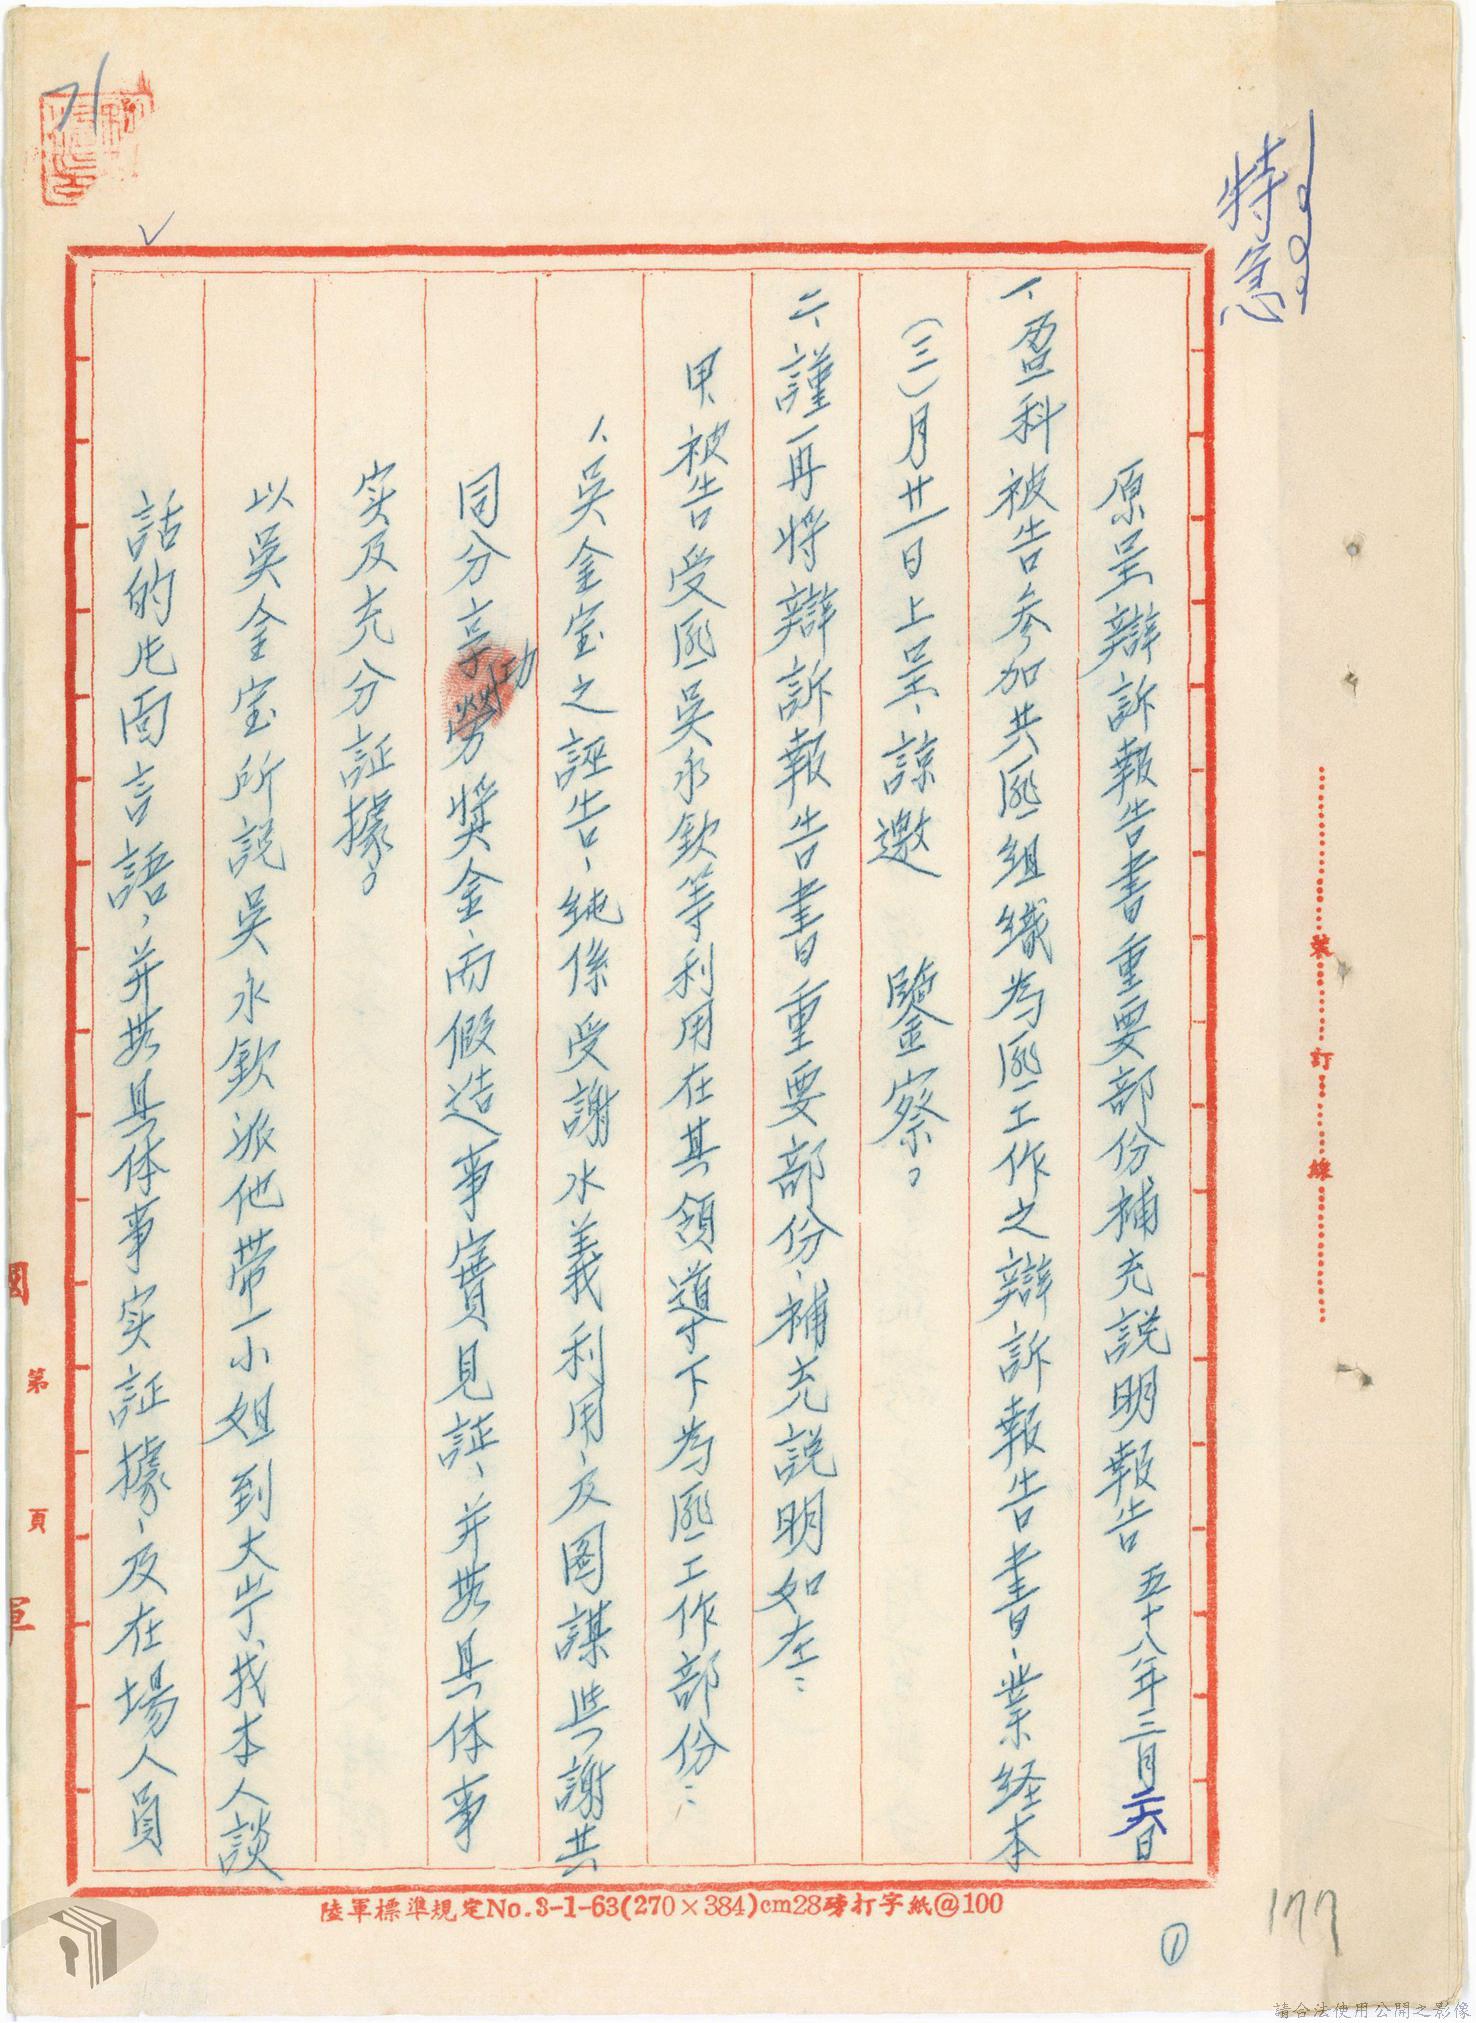 特急
原呈辯訴報告書重要部份補充說明報告 五十八年三月二六日
一、盈科被告參加共匪組織為匪工作之辯訴報告書、業經本
(三)月廿一日上呈、諒邀 鑒察。
二、謹再將辯訴報告書重要部份、補充說明如左：
甲、被告受匪吳永欽等利用在其領導下為匪工作部份：
1、吳金宝之誣告、純係受謝水義利用、及圖謀与謝共
同分享功勞獎金、而假造事實見証、并無具体事
实及充分証據。
以吳金宝所説吳永欽派他帶一小姐到大寮找本人談
話的片面言語，并無具体事实証據、及在場人員
裝訂線
國
第
頁
軍
陸軍標準規定No.3-1-63(270×384)cm28磅打字紙@100
①
177
請合法使用公開之影像